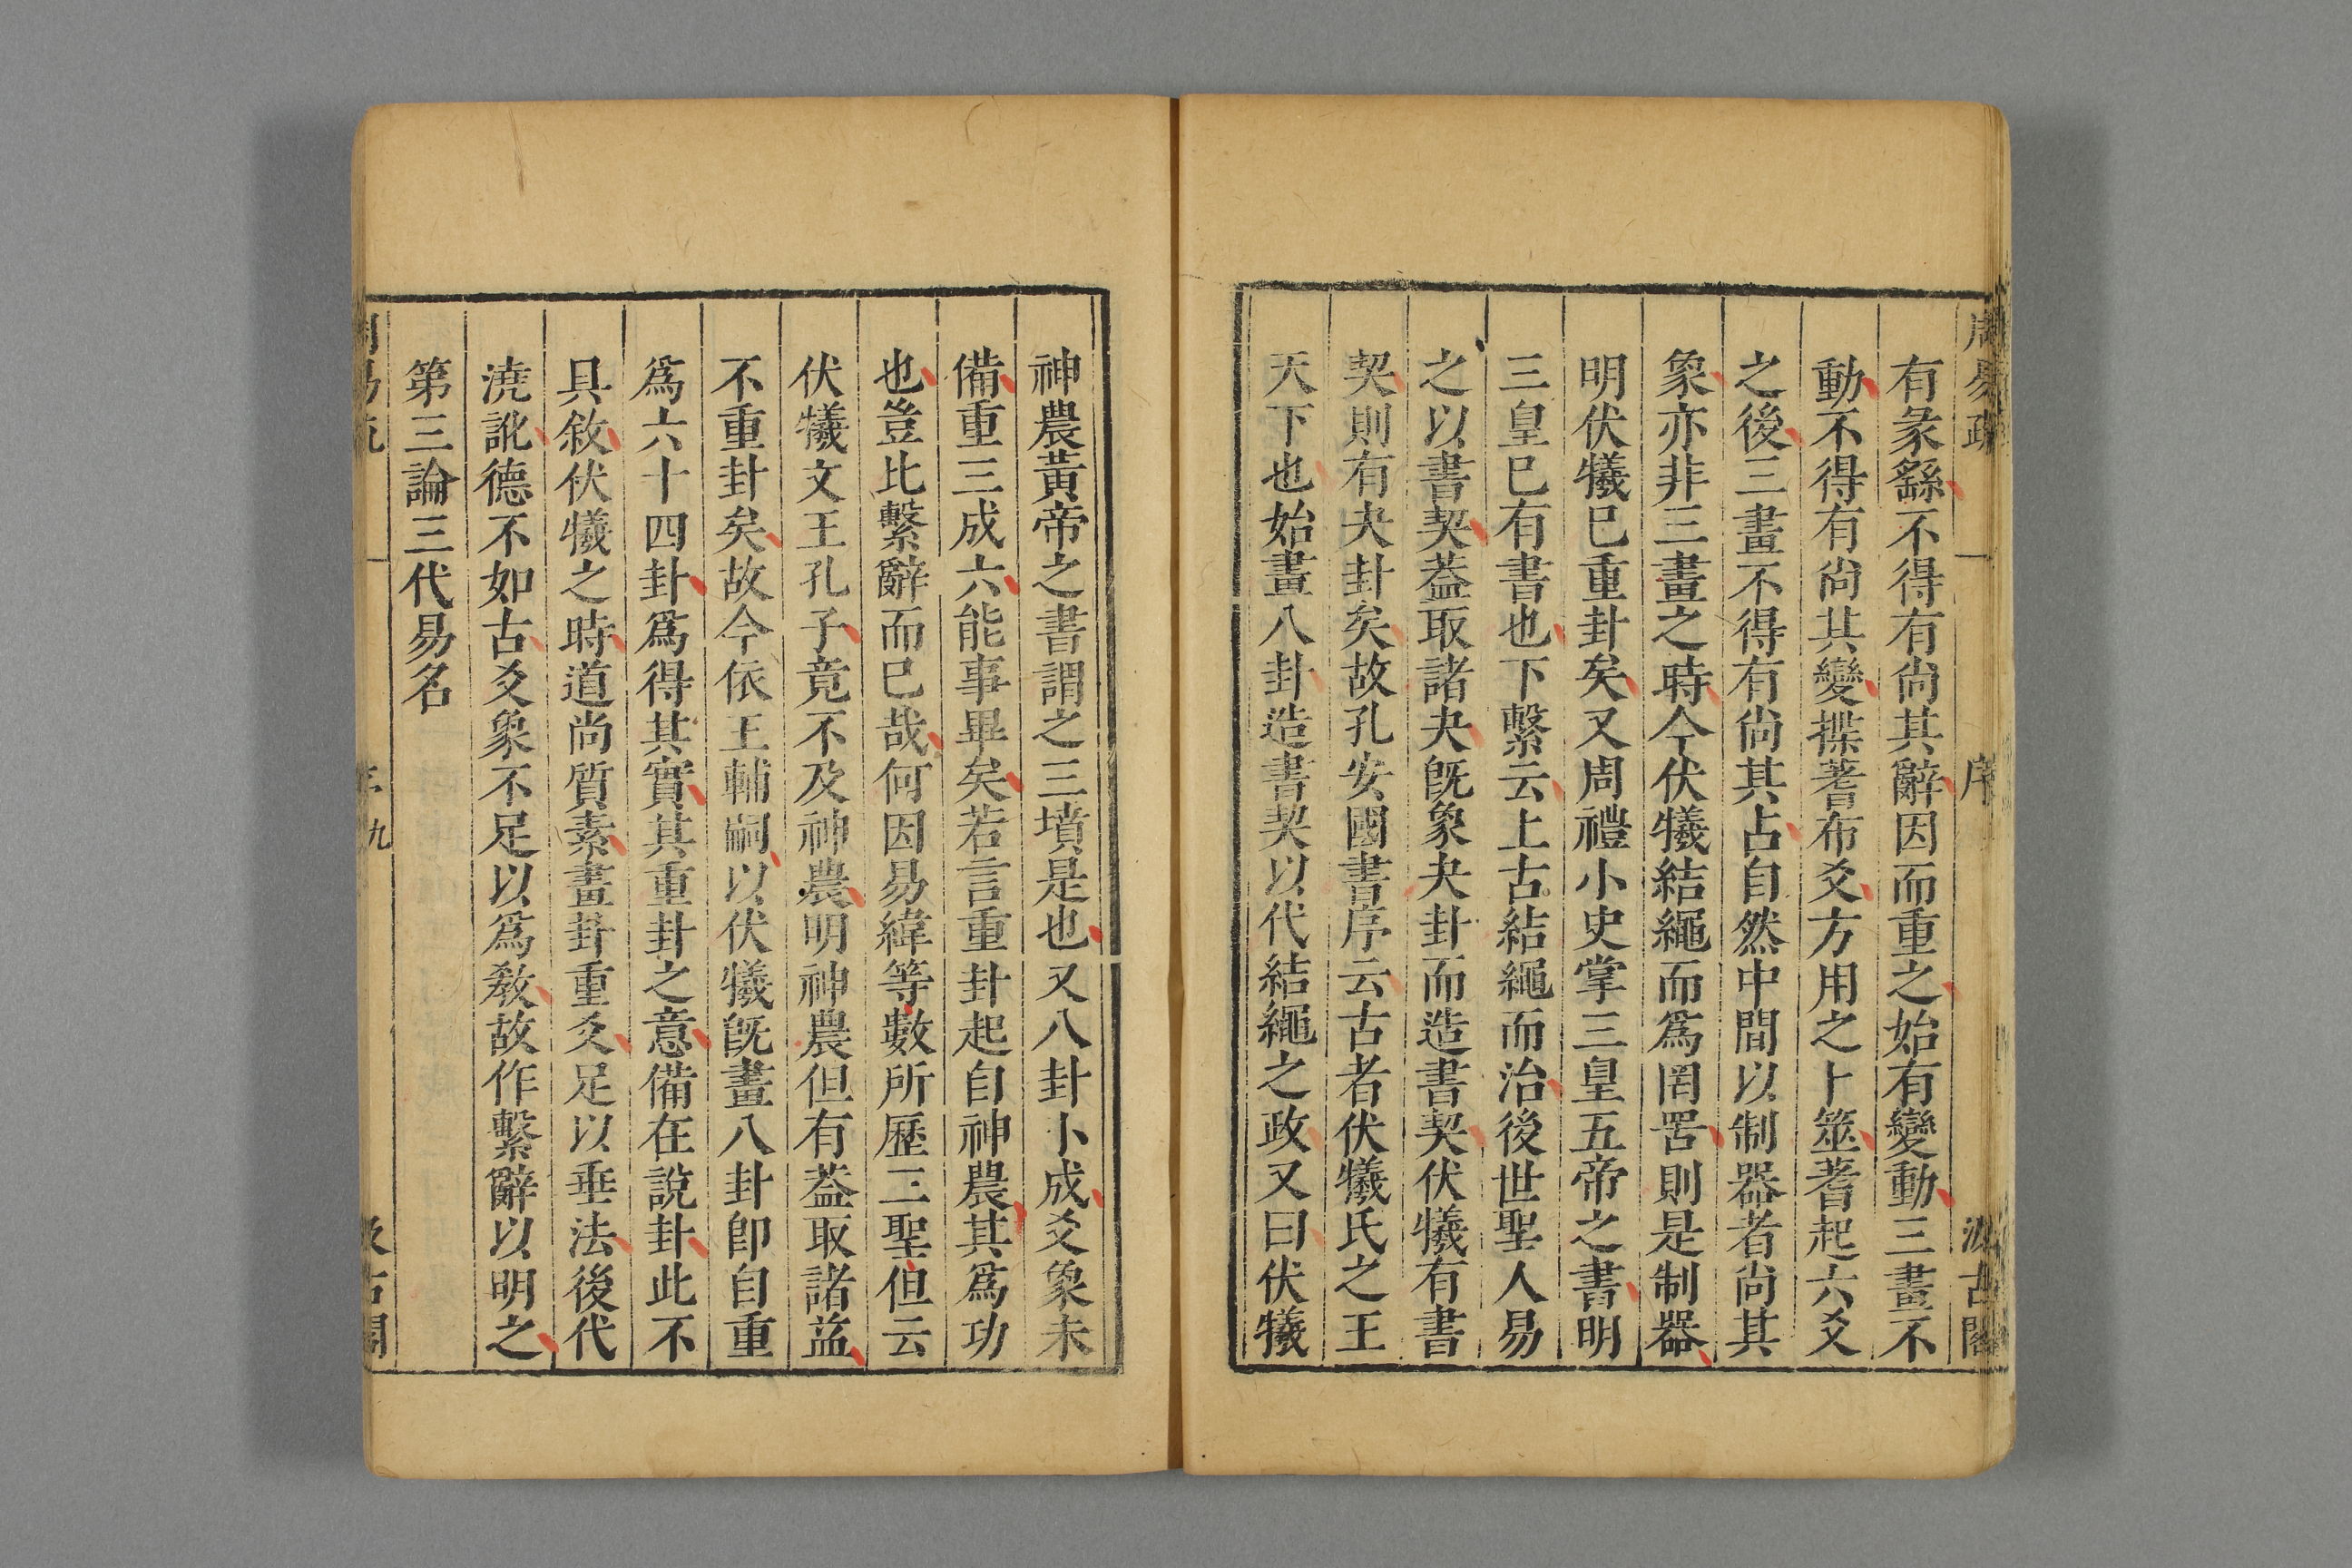 周易疏 序 汲古閣
有彖繇不得有尙其辭因而重之始有變動三畫不
動不得有尙其變揲蓍布爻方用之卜筮蓍起六爻
之後三畫不得有尙其占自然中間以制器者尙其
象亦非三畫之時今伏犧結繩而爲罔罟則是制器
明伏犧已重卦矣又周禮小史掌三皇五帝之書明
三皇已有書也下繫云上古結繩而治後世聖人易
之以書契葢取諸夬旣象夬卦而造書契伏犧有書
契則有夬卦矣故孔安國書序云古者伏犧氏之王
天下也始畫八卦造書契以代結繩之政又曰伏犧
神農黃帝之書謂之三墳是也又八卦小成爻象未
備重三成六能事畢矣若言重卦起自神農其爲功
也豈比繫辭而已哉何因易緯等數所歷三聖但云
伏犧文王孔子竟不及神農明神農但有葢取諸益
不重卦矣故今依王輔嗣以伏犧旣畫八卦卽自重
爲六十四卦爲得其實其重卦之意備在說卦此不
具敘伏犧之時道尚質素畫卦重爻足以垂法後代
澆訛德不如古爻象不足以爲敎故作繫辭以明之
第三論三代易名